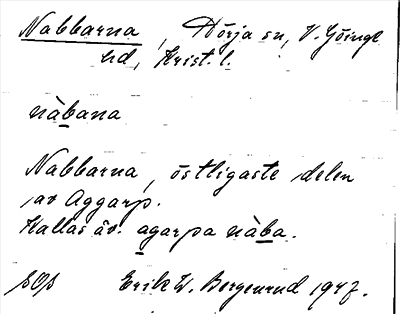 Nabbarna, Dörja sn, V. Göinge
hd, Krist. l.
nàbana
Nabbarna, östligaste delen
av Aggarp.
Kallas äv. agarpa nàba.
Erik W. Bergenrud 1947.